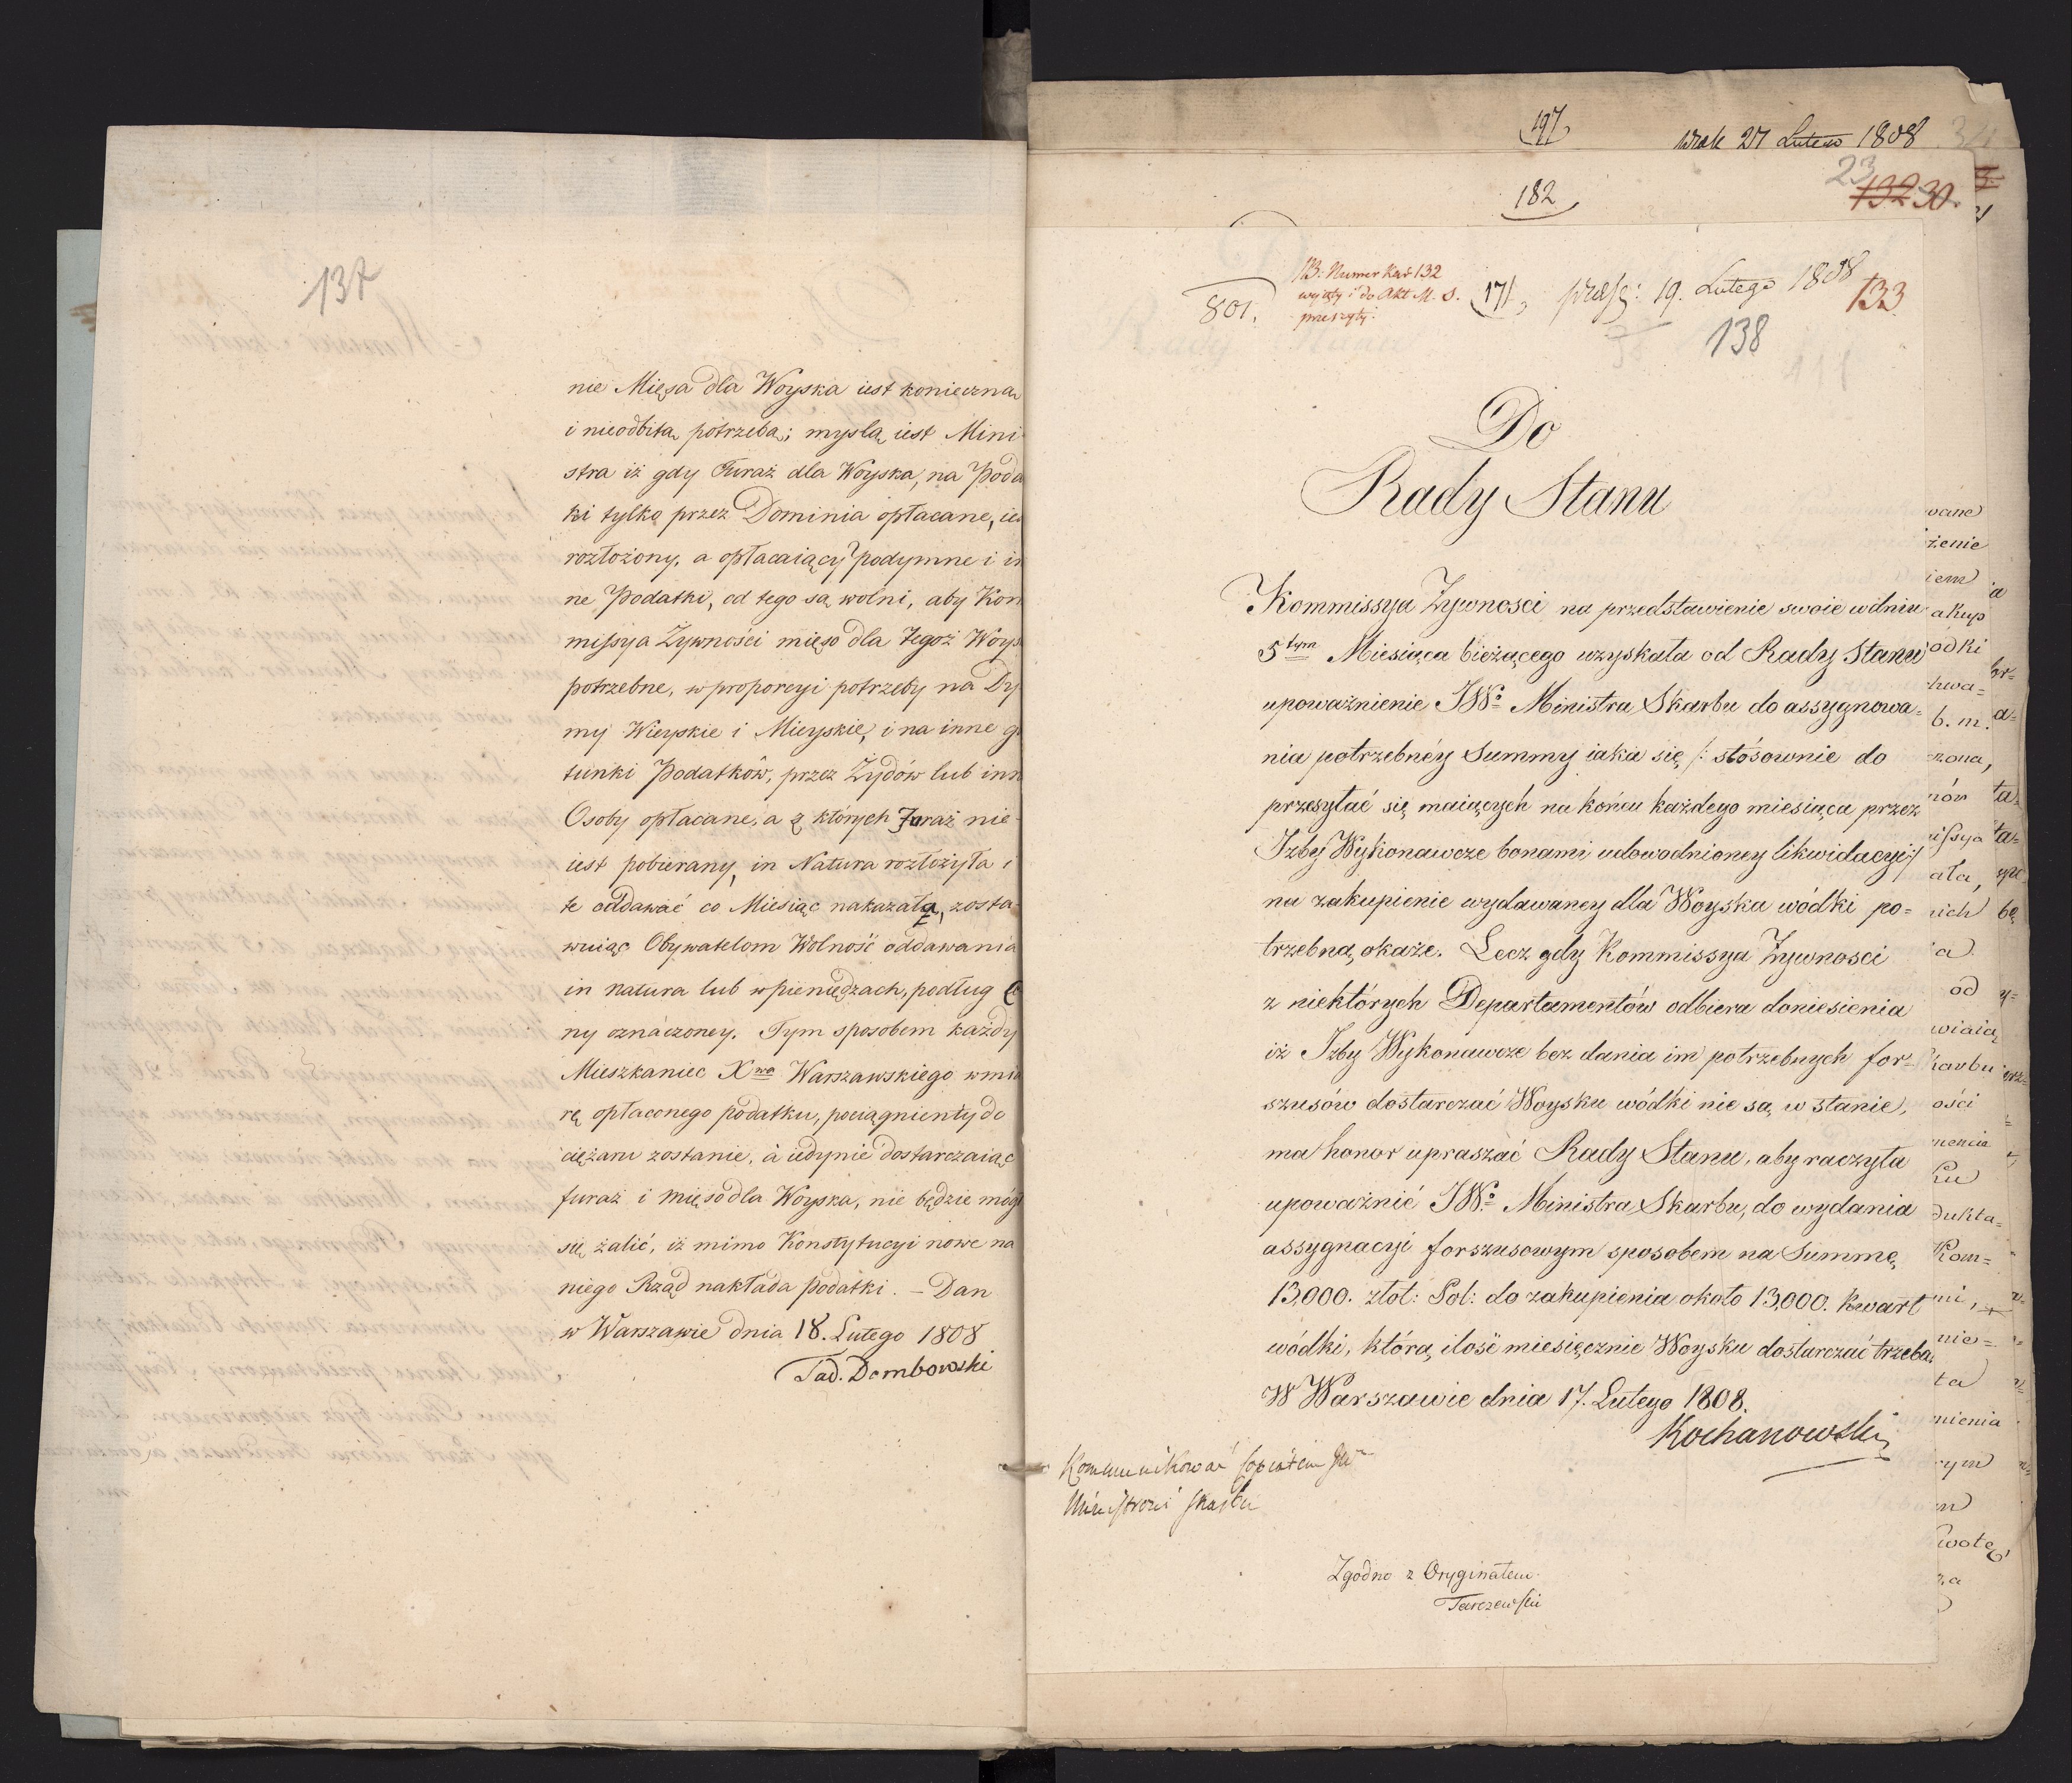 137
nie Mięsa dla Woyska iest konieczną
i nieodbitą potrzebą; myslą iest Mini
stra iż gdy Furaż dla Woyska, na Poda
ki tylko przez Dominia opłacane, ies
rozłożony, a opłacaiący Podymne i in
ne Podatki, od tego są wolni, aby Kom
missya Żywności mięso dla Tegoż Woys
potrzebne, w proporcyi potrzeby na Dy
my Wieyskie i Mieyskie, i na inne ga
tunki Podatków, przez Żydów lub inn
Osoby opłacane, a z których Furaż nie
iest pobierany, in Natura rozłożyła i
te oddawać co Miesiąc nakazała, zosta
wuiąc Obywatelom Wolność oddawania
in natura lub w pieniędzach, podług Ce
ny oznaczoney. Tym sposobem każdy
Mieszkaniec Xwa Warszawskiego w mia
rę opłaconego podatku, pociągnienty do
ciężaru zostanie, a iedynie dostarczaiąc
furaż i mięso dla Woyska, nie będzie mógł
się żalić, iż mimo Konstytucyi nowe na
niego Rząd nakłada podatki. – Dan
w Warszawie dnia 18. Lutego 1808
Tad. Dembowski
197
27 Lutego 1808
182
23
132 30.
801.
NB: Numer Kar 132
wyięty i do Akt M. S.
przeszyty.
171,
præs: 19. Lutego 1808
133
138
Do
Rady Stanu
Kommissya Zywnosci na przedstawienie swoie w dniu
5tym Miesiąca bieżącego uzyskała od Rady Stanu
upoważnienie JWo Ministra Skarbu do assygnowa=
nia potrzebnéy Summy iaka się /: stósownie do
przesyłać się maiących na końcu każdego miesiąca przez
Izby Wykonawcze bonami udowodnioney likwidacyi:/
na zakupienie wydawaney dla Woyska wódki po=
trzebną okaże. Lecz gdy Kommissya Zywnosci
z niektórych Departamentów odbiera doniesienia
iż Izby Wykonawcze bez dania im potrzebnych for=
szusów dostarczać Woysku wódki nie są w stanie,
ma honor upraszać Rady Stanu, aby raczyła
upoważnić JWo Ministra Skarbu, do wydania
assygnacyi forszusowym sposobem na Summę
13,000. złot: Pol: do zakupienia około 13,000. kwart
wódki, którą ilość miesięcznie Woysku dostarczać trzeba.
W Warszawie dnia 17. Lutego 1808.
Kochanowski
Kommunikować
Ministrowi Skarbu
Zgodno z Oryginałem
Tarczewski